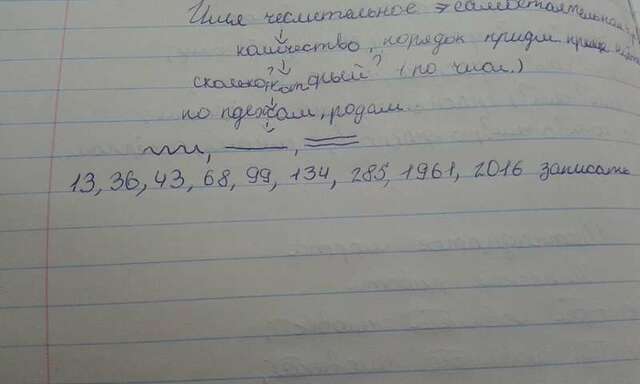 Имя числительное → самостоятельная
количество, порядок предм. при
сколько? который? (по числ.)
по падежам, родам
13, 36, 43, 68, 99, 134, 285, 1961, 2016 записать